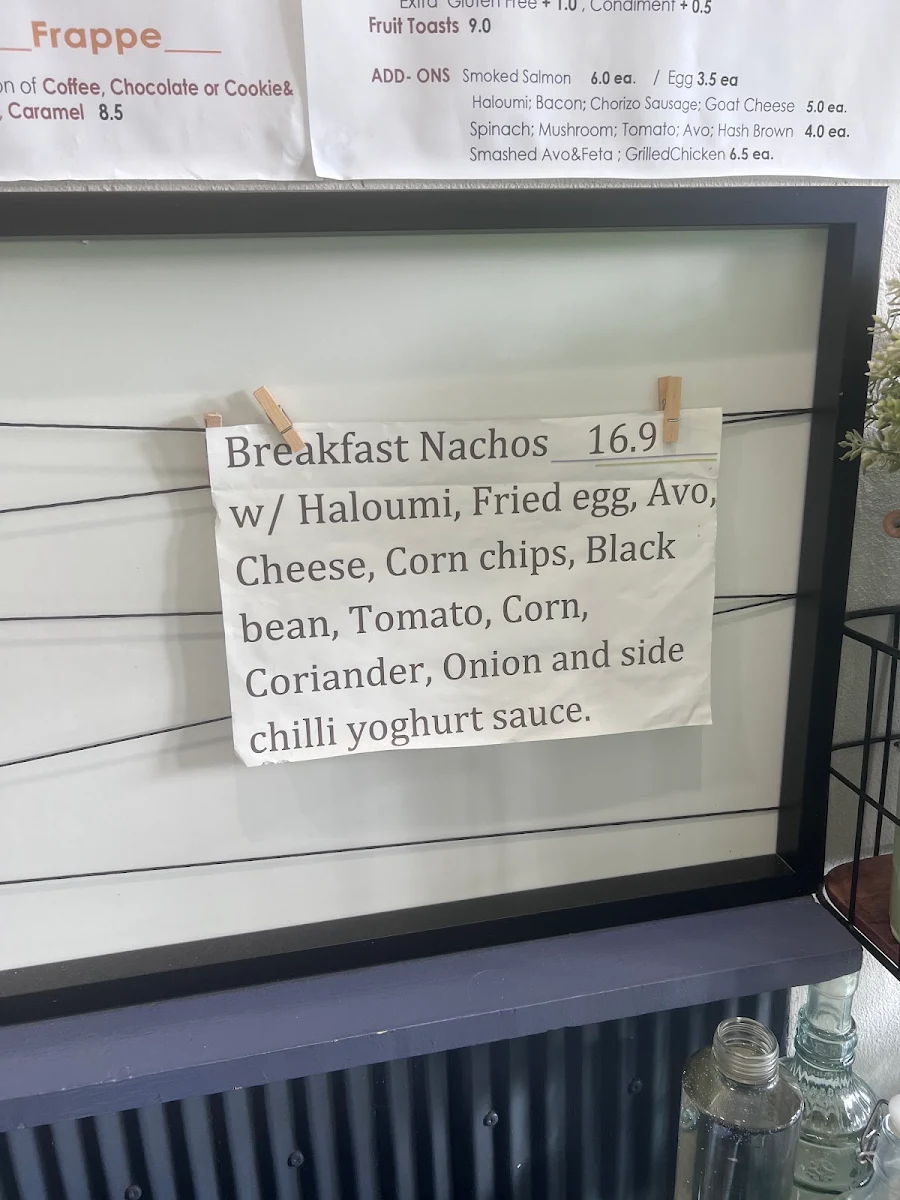 __Frappe___
on of Coffee, Chocolate or Cookie&
, Caramel 8.5
Extra Gluten Free + 1.0 , Condiment + 0.5
Fruit Toasts 9.0
ADD- ONS Smoked Salmon 6.0 ea. / Egg 3.5 ea
Haloumi; Bacon; Chorizo Sausage; Goat Cheese 5.0 ea.
Spinach; Mushroom; Tomato; Avo; Hash Brown 4.0 ea.
Smashed Avo&Feta ; GrilledChicken 6.5 ea.
Breakfast Nachos 16.9
w/ Haloumi, Fried egg, Avo,
Cheese, Corn chips, Black
bean, Tomato, Corn,
Coriander, Onion and side
chilli yoghurt sauce.